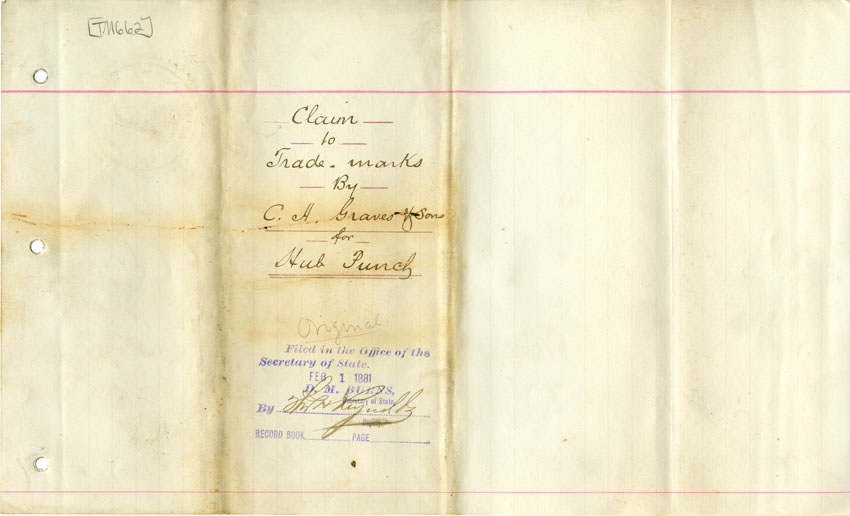 [TM662]
Claim
to
Trade-marks
By
C. H. Graves & Sons
for
Hub Punch
Original
Filed in the Office of the
Secretary of State.
FEB 1 1881
D. M. BURNS,
Secretary of State
By
Deputy
RECORD BOOK PAGE